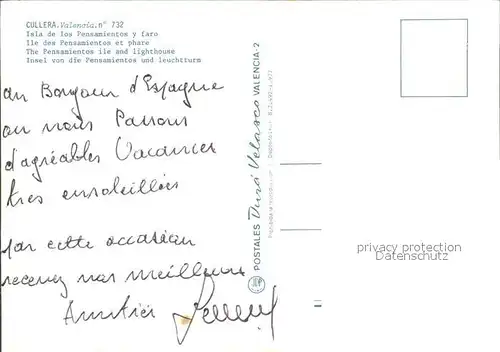 CULLERA.Valencia.nº 732
Isla de los Pensamientos y faro
Ile des Pensamientos et phare
The Pensamientos ile and lighthouse
Insel von die Pensamientos und leuchtturm
un Bonjour d'Espagne
ou nous Passons
d'agréables Vacances
tres ensoleillées
par cette occasion
recevez nos meilleures
Amitiés
POSTALES Durá Velasco VALENCIA-2
privacy protection
Datenschutz